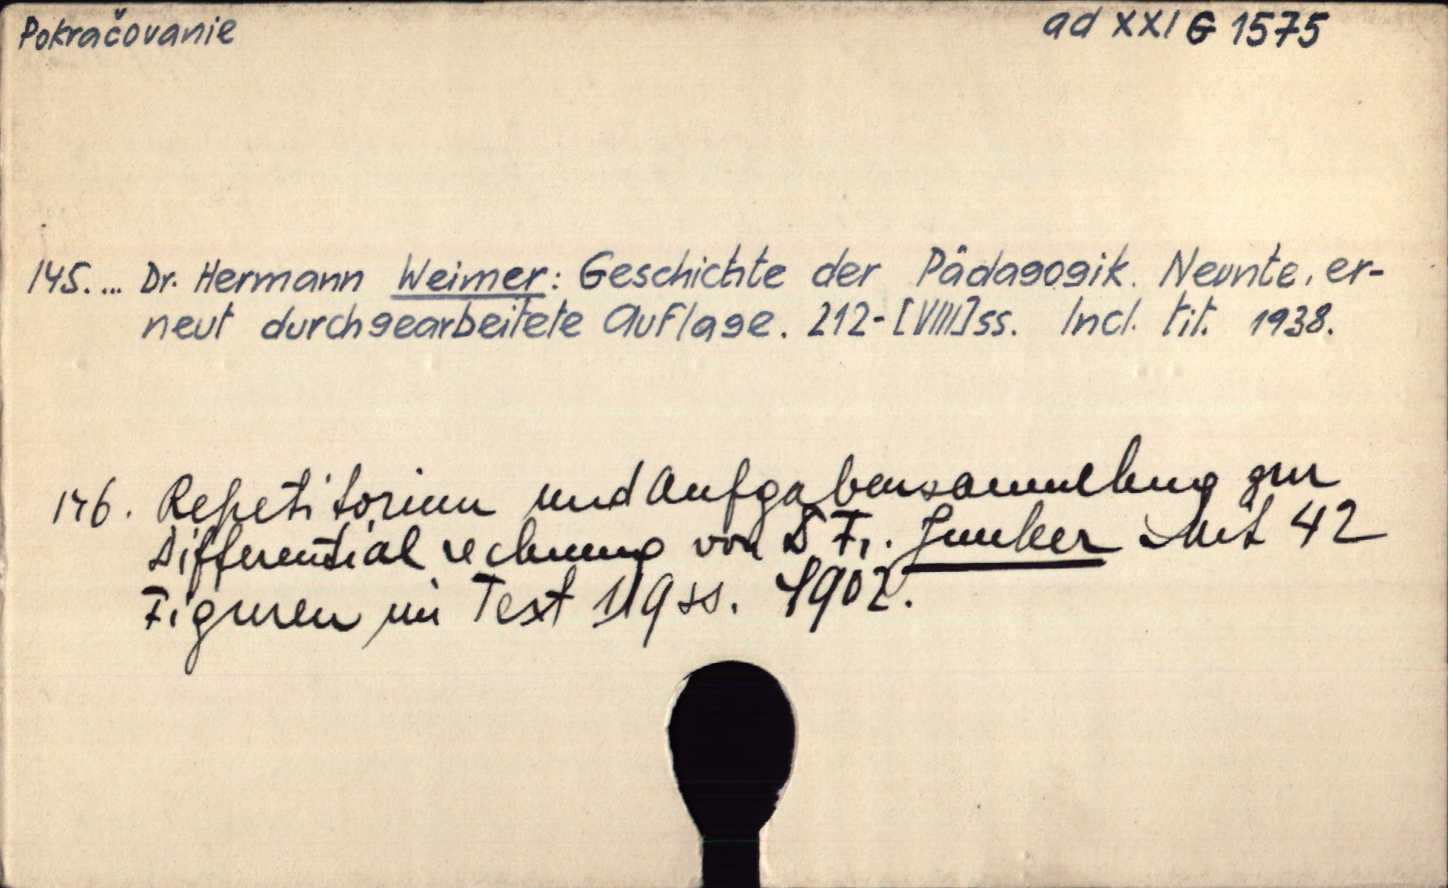 Pokračovanie
ad XXI G 1575
145. ... Dr. Hermann Weimer: Geschichte der Pädagogik. Neunte, er-
neut durchgearbeitete Auflage. 212-[VIII]ss. Incl. tit. 1938.
146. Repetitorium und Aufgabensammlung zur
Differentialrechnung von D Fr. Junker Mit 42
Figuren im Text 119 ss. 1902.